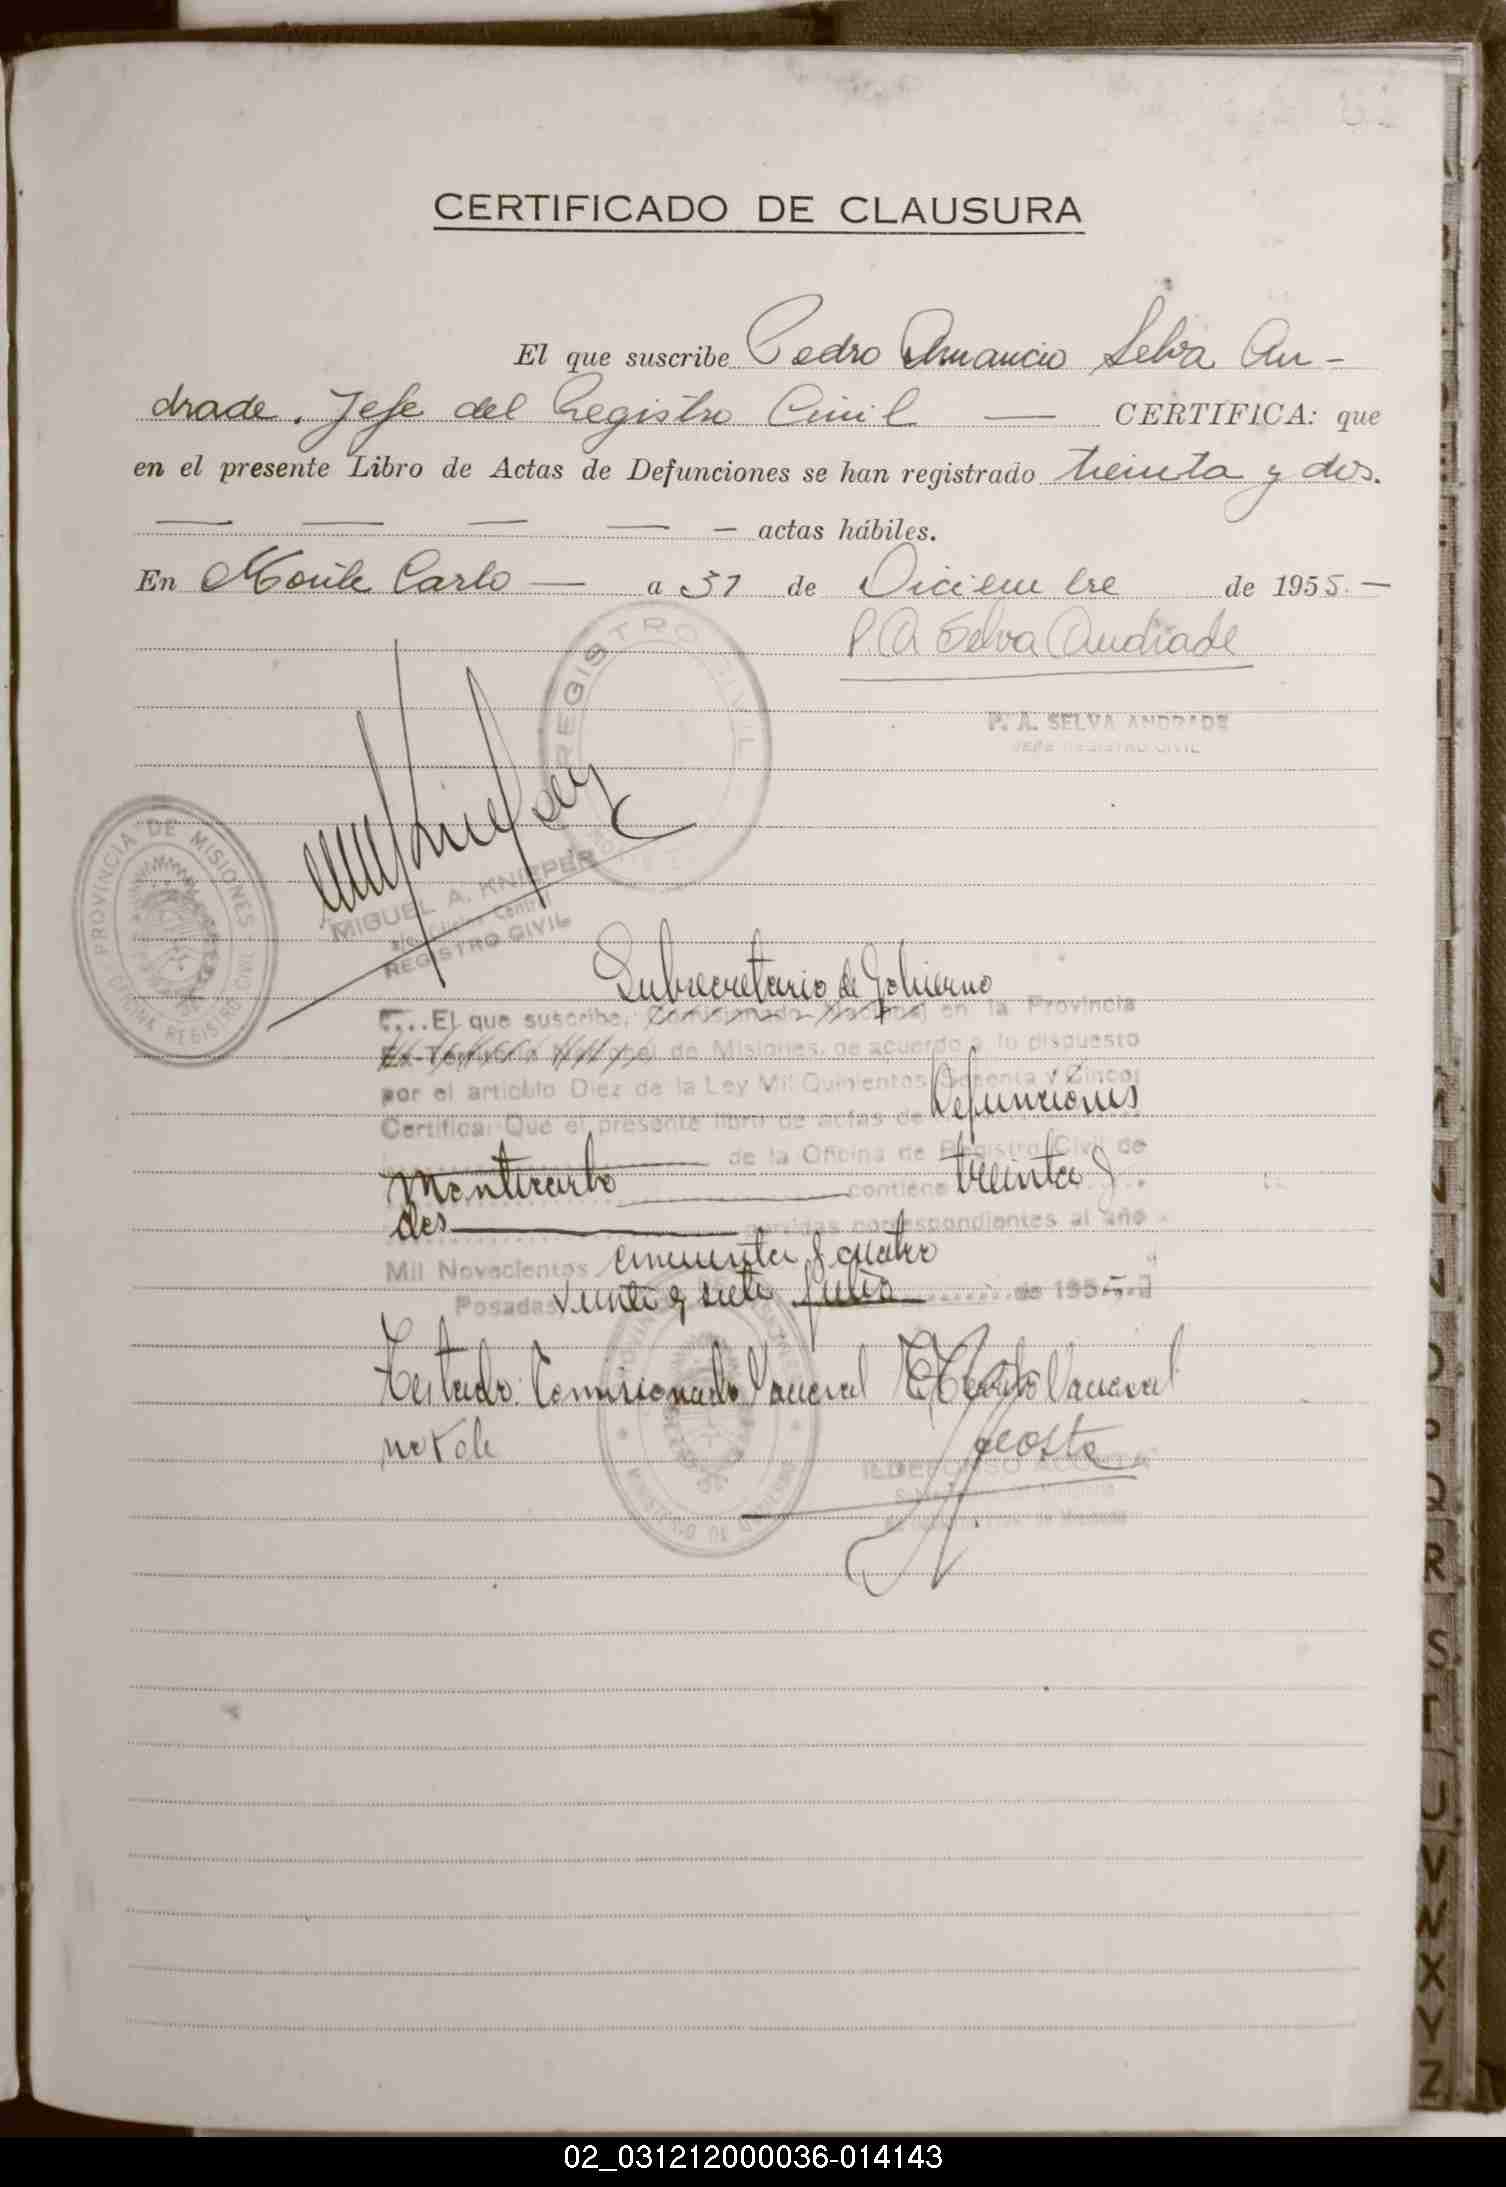 CERTIFICADO DE CLAUSURA
El que suscribe Pedro Amancio Selva An-
drade. Jefe del Registro Civil — CERTIFICA: que
en el presente Libro de Actas de Defunciones se han registrado treinta y dos.
— — — — — actas hábiles.
En Monte Carlo — a 31 de Diciembre de 1955. —
P. A Selva Andrade
P. A. SELVA ANDRADE
JEFE REGISTRO CIVIL
REGISTRO CIVIL
PROVINCIA DE MISIONES
OFICINA REGISTRO CIVIL
MIGUEL A. KNIEPER
Oficina Central
REGISTRO CIVIL
Subsecretario de Gobierno
....El que suscribe, Comisionado Nacional en la Provincia
Ex-Territorio Nacional de Misiones, de acuerdo a lo dispuesto
por el artículo Diez de la Ley Mil Quinientos Setenta y Cinco;
Certifica: Que el presente libro de actas de Defunciones
de la Oficina de Registro Civil de
Montecarlo contiene treinta y
dos partidas correspondientes al año
Mil Novecientos cincuenta y cuatro
Posadas veinte y siete julio de 1955.-
Testado: Comisionado Nacional Ex Territorio Nacional
no vale
Acosta
ILDEFONSO ACOSTA
R
S
T
U
V
X
Y
Z
02_031212000036-014143